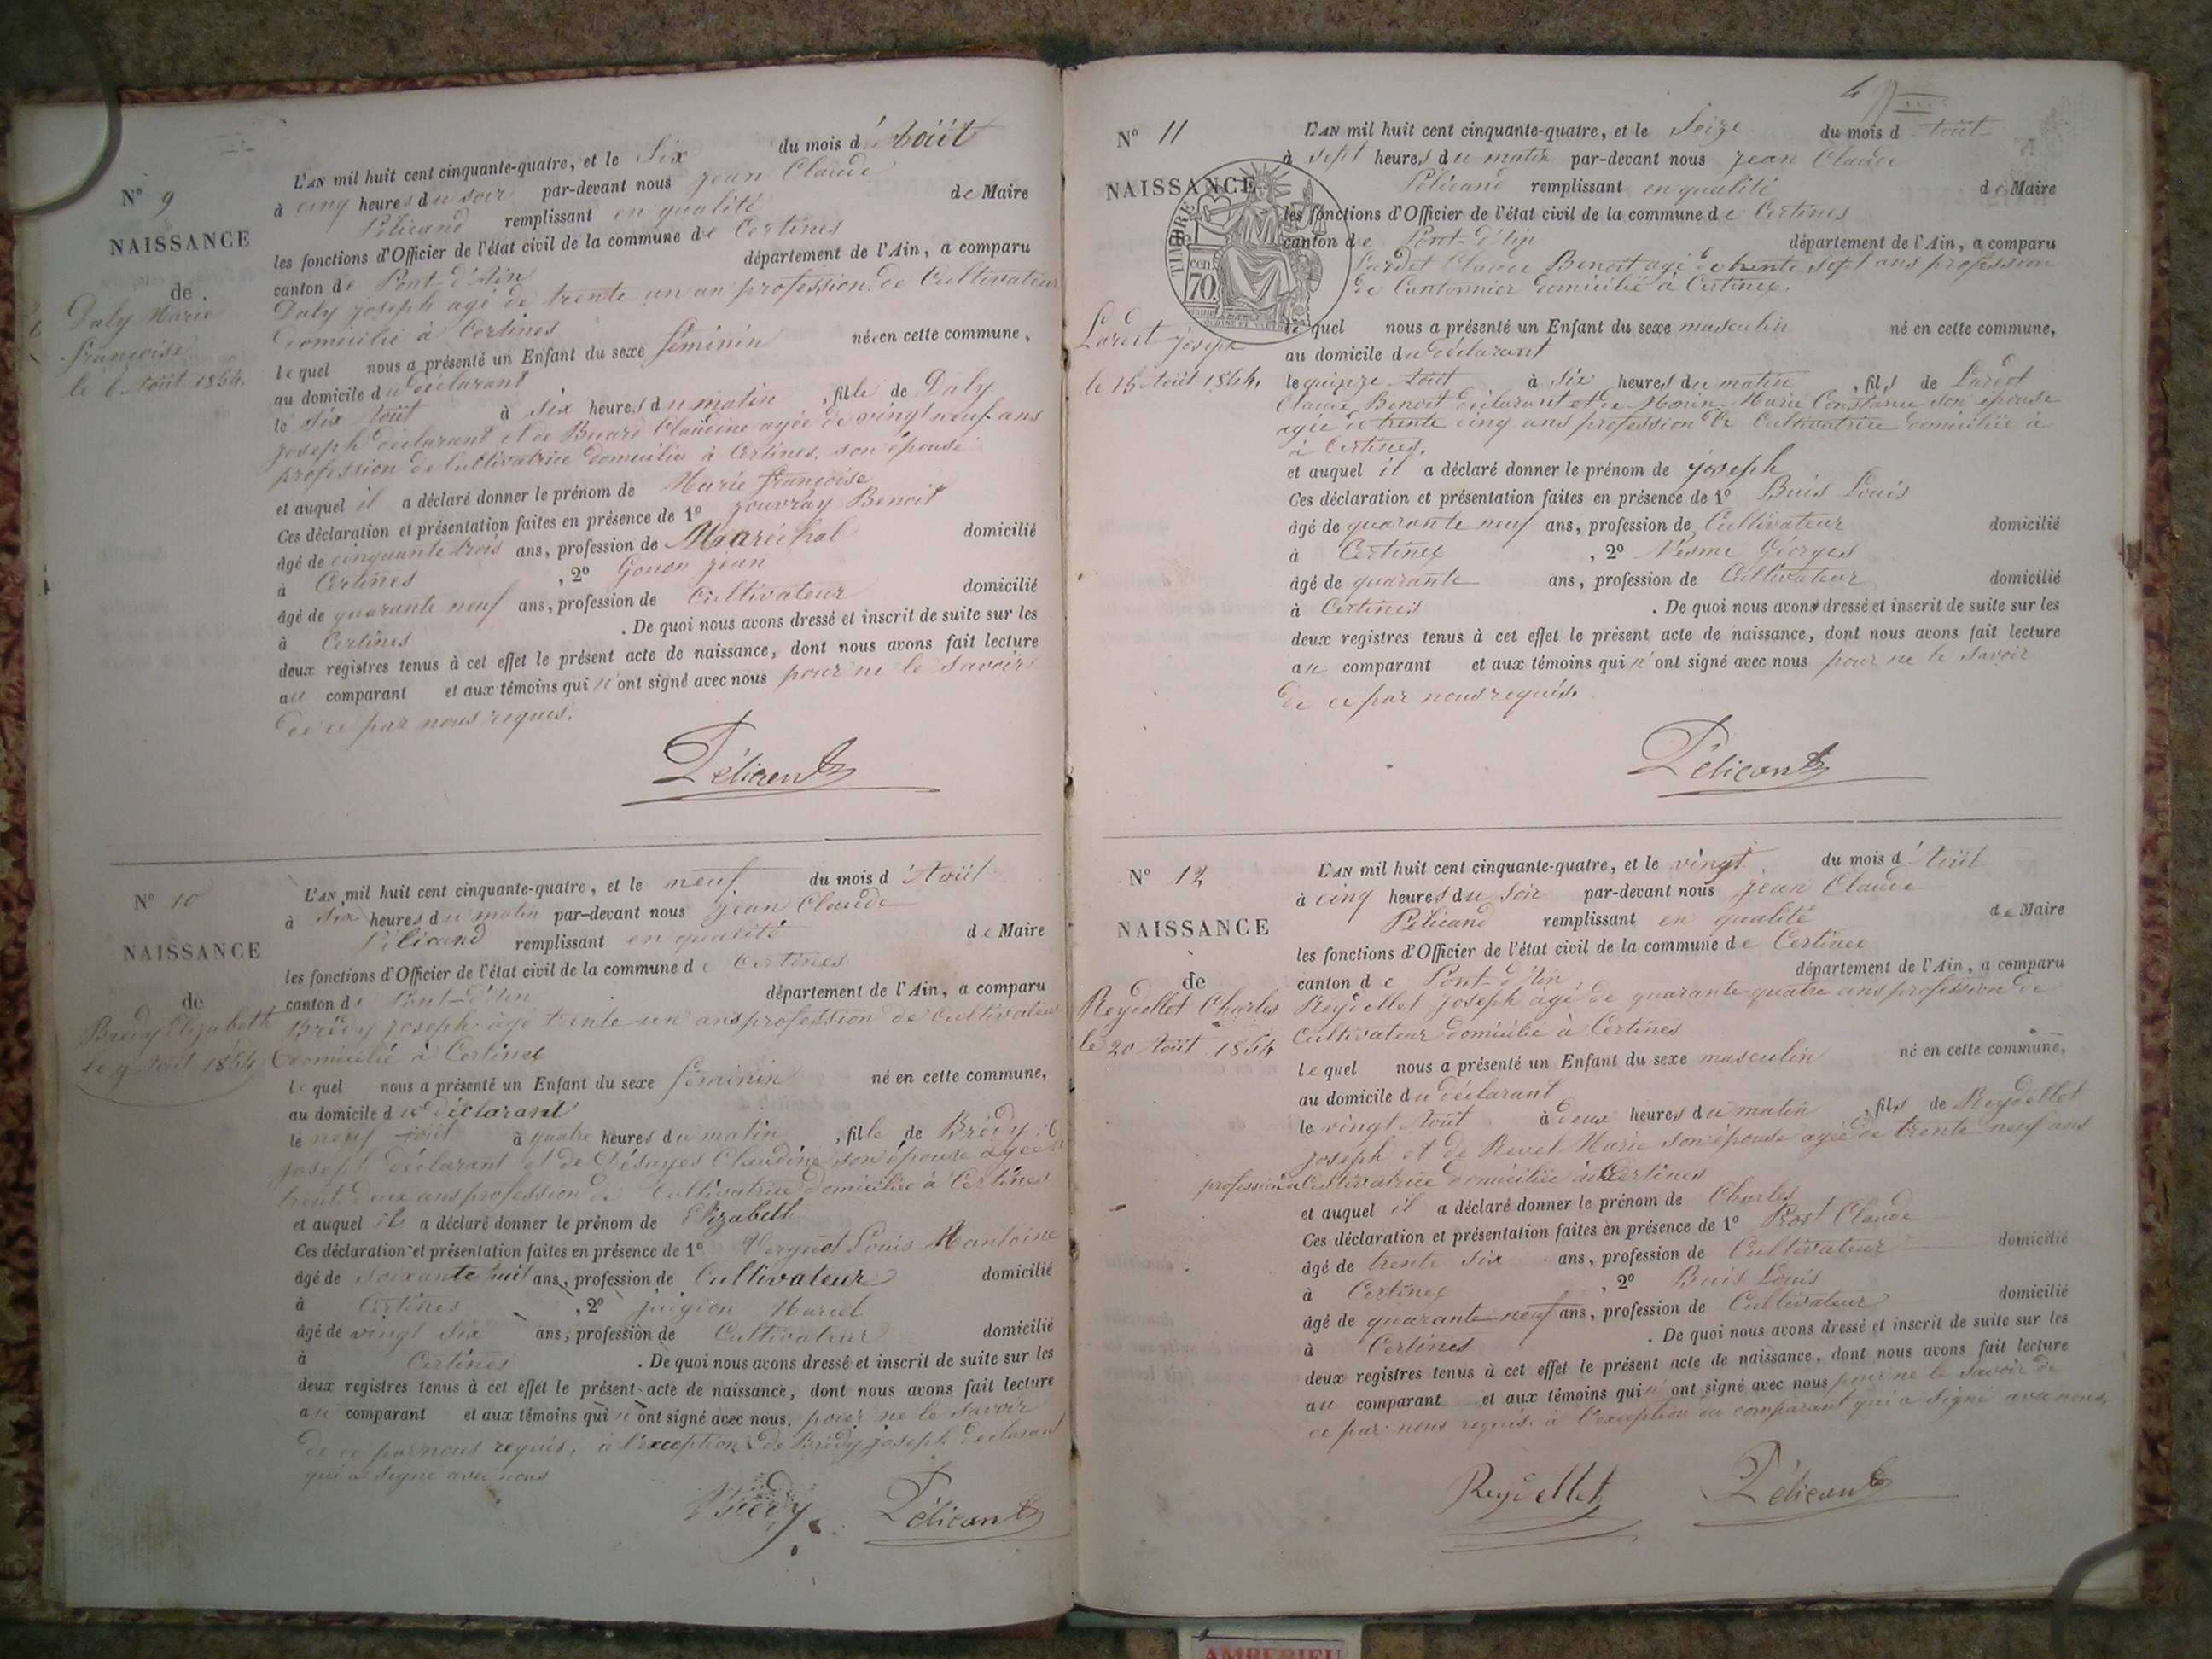 N° 9
NAISSANCE
de
Daly Marie
françoise
le 6 Août 1854.
L'AN mil huit cent cinquante-quatre, et le Six du mois d'Août
à cinq heures du soir par-devant nous jean Claude
Pélicand remplissant en qualité de Maire
les fonctions d'Officier de l'état civil de la commune de Certines
canton de Pont-d'Ain département de l'Ain, a comparu
Daly joseph agé de trente un an profession de Cultivateur
domicilié à Certines
lequel nous a présenté un Enfant du sexe féminin née en cette commune,
au domicile du déclarant
le six Août à six heures du matin, fille de Daly
joseph déclarant et de Buard Claudine agée de vingt neuf ans
profession de Cultivatrice domiciliée à Certines, son épouse
et auquel il a déclaré donner le prénom de Marie françoise
Ces déclaration et présentation faites en présence de 1° jouvray Benoit
âgé de cinquante trois ans, profession de Maréchal domicilié
à Certines, 2° Gonon jean
âgé de quarante neuf ans, profession de Cultivateur domicilié
à Certines. De quoi nous avons dressé et inscrit de suite sur les
deux registres tenus à cet effet le présent acte de naissance, dont nous avons fait lecture
au comparant et aux témoins qui n'ont signé avec nous pour ne le savoir
de ce par nous requis.
Pélicand
N° 10
NAISSANCE
de
Brédy Elizabeth
le 9 Août 1854
L'AN mil huit cent cinquante-quatre, et le neuf du mois d'Août
à six heures du matin par-devant nous jean Claude
Pélicand remplissant en qualité de Maire
les fonctions d'Officier de l'état civil de la commune de Certines
canton de Pont-d'Ain département de l'Ain, a comparu
Brédy joseph agé trente un ans profession de Cultivateur
domicilié à Certines
lequel nous a présenté un Enfant du sexe féminin né en cette commune,
au domicile du déclarant
le neuf Août à quatre heures du matin, fille de Brédy
joseph déclarant et de Désayes Claudine son épouse agée
trente deux ans profession de Cultivatrice domiciliée à Certines
et auquel il a déclaré donner le prénom de Elizabeth
Ces déclaration et présentation faites en présence de 1° Vergnet Louis
âgé de soixante huit ans, profession de Cultivateur domicilié
à Certines, 2° Marcel
âgé de vingt six ans, profession de Cultivateur domicilié
à Certines. De quoi nous avons dressé et inscrit de suite sur les
deux registres tenus à cet effet le présent acte de naissance, dont nous avons fait lecture
au comparant et aux témoins qui n'ont signé avec nous, pour ne le savoir
de ce par nous requis, à l'exception de Brédy joseph déclarant
qui a signé avec nous
Brédy Pélicand
N° 11
NAISSANCE
de
TIMBRE
70 cen.
Lardet joseph
le 15 Août 1854.
L'AN mil huit cent cinquante-quatre, et le Seize du mois d Août
à sept heures du matin par-devant nous jean Claude
Pélicand remplissant en qualité de Maire
les fonctions d'Officier de l'état civil de la commune de Certines
canton de Pont-d'Ain département de l'Ain, a comparu
Lardet Claude Benoit agé de trente sept ans profession
de Cantonnier domicilié à Certines.
lequel nous a présenté un Enfant du sexe masculin né en cette commune,
au domicile du déclarant
le quinze Août à six heures du matin, fils de Lardet
Claude Benoit déclarant et de Monin Marie Constance son épouse
agée de trente cinq ans profession de Cultivatrice domiciliée à
à Certines.
et auquel il a déclaré donner le prénom de joseph
Ces déclaration et présentation faites en présence de 1° Buis Louis
âgé de quarante neuf ans, profession de Cultivateur domicilié
à Certines, 2° Nesme Géorges
âgé de quarante ans, profession de Cultivateur domicilié
à Certines. De quoi nous avons dressé et inscrit de suite sur les
deux registres tenus à cet effet le présent acte de naissance, dont nous avons fait lecture
au comparant et aux témoins qui n'ont signé avec nous pour ne le savoir
de ce par nous requis.
Pélicand
N° 12
NAISSANCE
de
Reydellet Charles
le 20 Août 1854
L'AN mil huit cent cinquante-quatre, et le vingt du mois d'Août
à cinq heures du soir par-devant nous jean Claude
Pélicand remplissant en qualité de Maire
les fonctions d'Officier de l'état civil de la commune de Certines
canton de Pont-d'Ain département de l'Ain, a comparu
Reydellet joseph agé de quarante quatre ans profession de
Cultivateur domicilié à Certines
lequel nous a présenté un Enfant du sexe masculin né en cette commune,
au domicile du déclarant
le vingt Août à deux heures du matin, fils de Reydellet
joseph et de Revel Marie son épouse agée de trente neuf ans
profession de Cultivatrice domiciliée à Certines
et auquel il a déclaré donner le prénom de Charles
Ces déclaration et présentation faites en présence de 1° Prost Claude
âgé de trente six ans, profession de Cultivateur domicilié
à Certines, 2° Buis Louis
âgé de quarante neuf ans, profession de Cultivateur domicilié
à Certines. De quoi nous avons dressé et inscrit de suite sur les
deux registres tenus à cet effet le présent acte de naissance, dont nous avons fait lecture
au comparant et aux témoins qui n'ont signé avec nous pour ne le savoir de
ce par nous requis, à l'exception du comparant qui a signé avec nous.
Reydellet Pélicand
AMBERIEU